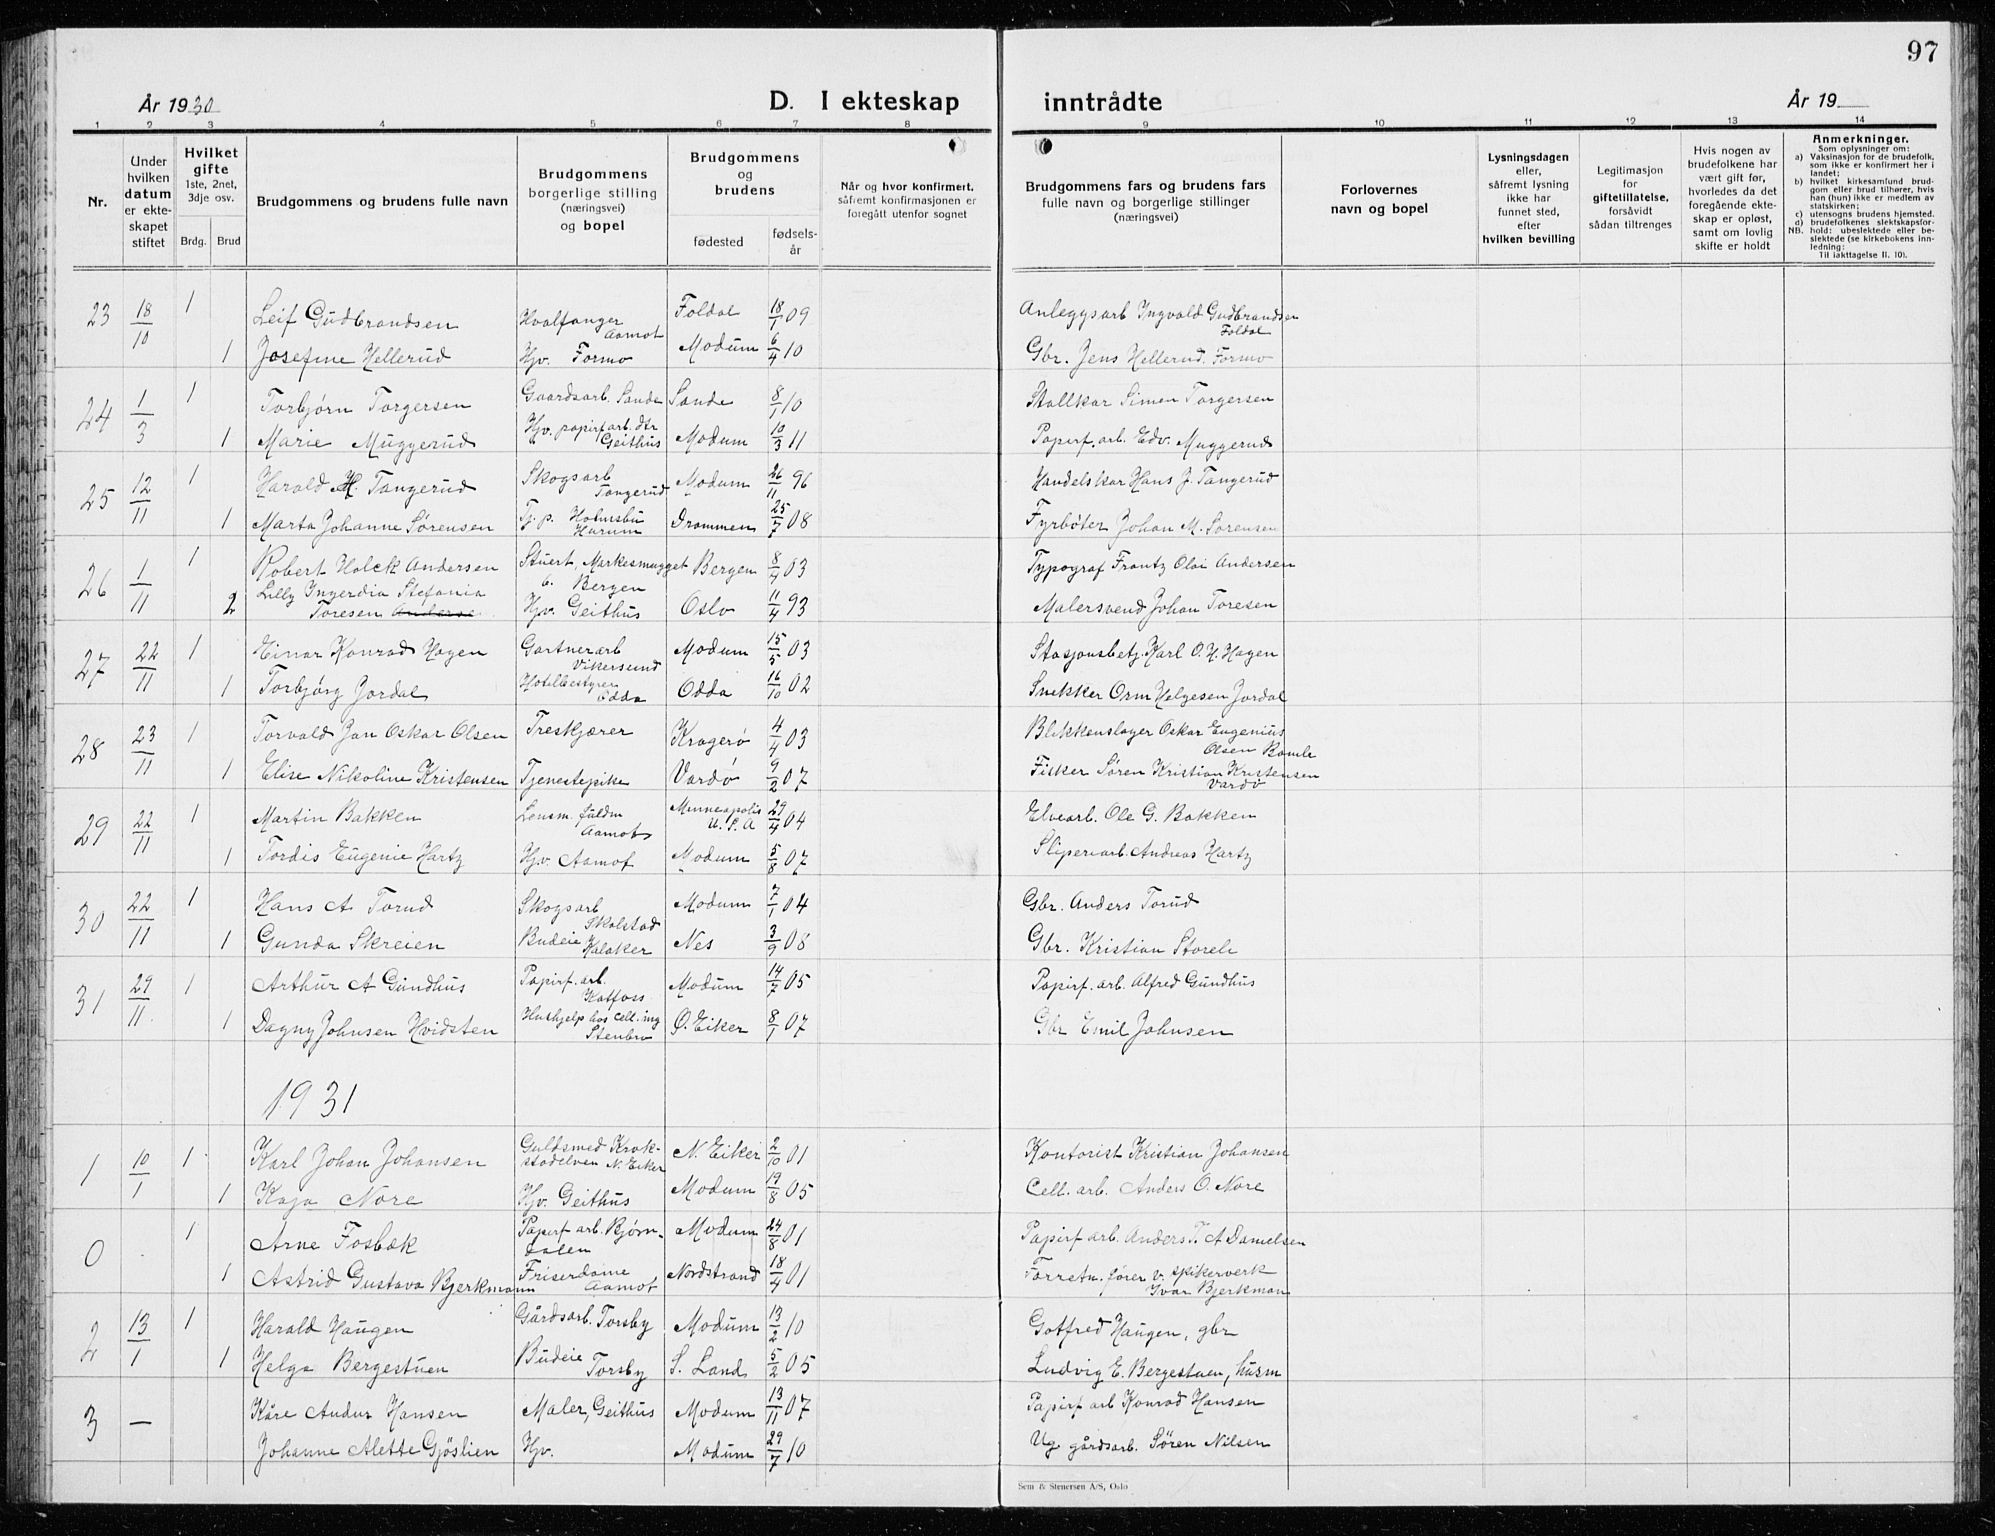 97
År 1930
D. I ekteskap inntrådte
År 19
1 2 3 4 5 6 7 8 9 10 11 12 13 14
Nr.
Under hvilken datum er ekteskapet stiftet
Hvilket gifte 1ste, 2net, 3dje osv.
Brdg. Brud
Brudgommens og brudens fulle navn
Brudgommens borgerlige stilling (næringsvei) og bopel
Brudgommens og brudens
fødested
fødselsår
Når og hvor konfirmert, såfremt konfirmasjonen er foregått utenfor sognet
Brudgommens fars og brudens fars fulle navn og borgerlige stillinger (næringsvei)
Forlovernes navn og bopel
Lysningsdagen eller, såfremt lysning ikke har funnet sted, efter hvilken bevilling
Legitimasjon for giftetillatelse, forsåvidt sådan tiltrenges
Hvis nogen av brudefolkene har vært gift før, hvorledes da det foregående ekteskap er opløst, samt om lovlig skifte er holdt
Anmerkninger.
Som oplysninger om:
a) Vaksinasjon for de brudefolk, som ikke er konfirmert her i landet;
b) hvilket kirkesamfund brudgom eller brud tilhører, hvis han (hun) ikke er medlem av statskirken;
c) utensogns brudens hjemsted.
d) brudefolkenes slektskapsforhold: ubeslektede eller beslektede (se kirkebokens innledning:
NB. Til iakttagelse II. 10).
23 18/10 1 Leif Gudbrandsen Hvalfanger Aamot Foldal 18/1 09 Anleggsarb Ingvald Gudbrandsen Foldal
1 Josefine Hellerud Hjv. Formo Modum 6/4 10 Gbr. Jens Hellerud. Formo
24 1/3 1 Torbjørn Torgersen Gaardsarb. Sande Sande 8/1 10 Stallkar Simen Torgersen
1 Marie Muggerud Hjv. papirfarb. dtr Geithus Modum 10/3 11 Papirf. arb. Edv. Muggerud
25 12/11 1 Harald H. Tangerud Skogsarb Tangerud Modum 26/11 96 Handelskar Hans J. Tangerud
1 Marta Johanne Sørensen Tj. p. Holmsbu Hurum Drammen 25/7 08 Fyrbøter Johan M. Sørensen
26 1/11 1 Robert Holck Andersen Stuert, Markesmugget 6. Bergen Bergen 8/4 03 Typograf Frantz Olai Andersen
2 Lilly Ingerdia Stefania Toresen Hjv. Geithus Oslo 11/4 93 Malersvend Johan Toresen
27 22/11 1 Einar Konrad Hagen Gartnerarb Vikersund Modum 15/5 03 Stasjonsbetj. Karl O. H. Hagen
1 Torbjørg Jordal Hotellbestyrer Odda Odda 16/10 02 Snekker Orm Helgesen Jordal
28 23/11 1 Torvald Jan Oskar Olsen Treskjærer Kragerø 4/4 03 Blikkenslager Oskar Eugenius Olsen Bamle
1 Elise Nikoline Kristensen Tjenestepike Vardø 9/2 07 Fisker Søren Kristian Kristensen Vardø
29 22/11 1 Martin Bakken Lensm. fuldm Aamot Minneapolis U. S. A 29/4 04 Elvearb. Ole G. Bakken
1 Tordis Eugenie Hartz Hjv. Aamot Modum 5/8 07 Sliperiarb. Andreas Hartz
30 22/11 1 Hans A Torud Skogsarb Skalstad Modum 7/1 04 Gbr. Anders Torud
1 Gunda Skreien Budeie Kalaker Nes 3/9 08 Gbr. Kristian Storeli
31 29/11 1 Arthur A Gundhus Papirf. arb. Katfoss Modum 14/7 05 Papirf. arb. Alfred Gundhus
1 Dagny Johnsen Hvidsten Hushjelp hos cell. ing Stenbro Ø. Eiker 8/1 07 Gbr Emil Johnsen
1931
1 10/1 1 Karl Johan Johansen Guldsmed Krokstadelven N. Eiker N. Eiker 2/10 01 Kontorist Kristian Johansen
1 Kaja Nore Hjv. Geithus Modum 19/8 05 Cell. arb. Anders O. Nore
0 1 Arne Fosbæk Papirf arb. Bjørndalen Modum 24/8 01 Papirf arb. Anders T. A Danielsen
1 Astrid Gustava Bjerkmann Friserdame Aamot Nordstrand 18/4 01 Forretn. fører v. spikerverk Ivar Bjerkman
2 13/1 1 Harald Haugen Gårdsarb. Torsby Modum 13/2 10 Gotfred Haugen, gbr
1 Helga Bergestuen Budeie Torsby S. Land 5/2 05 Ludvig E. Bergestuen, husm
3 — Kåre Andur Hansen Maler, Geithus Modum 13/11 07 Papirf arb Konrad Hansen
Johanne Alette Gjøslien Hjv. Modum 29/7 10 Ug gårdsarb. Søren Nilsen
Sem & Stenersen A/S, Oslo